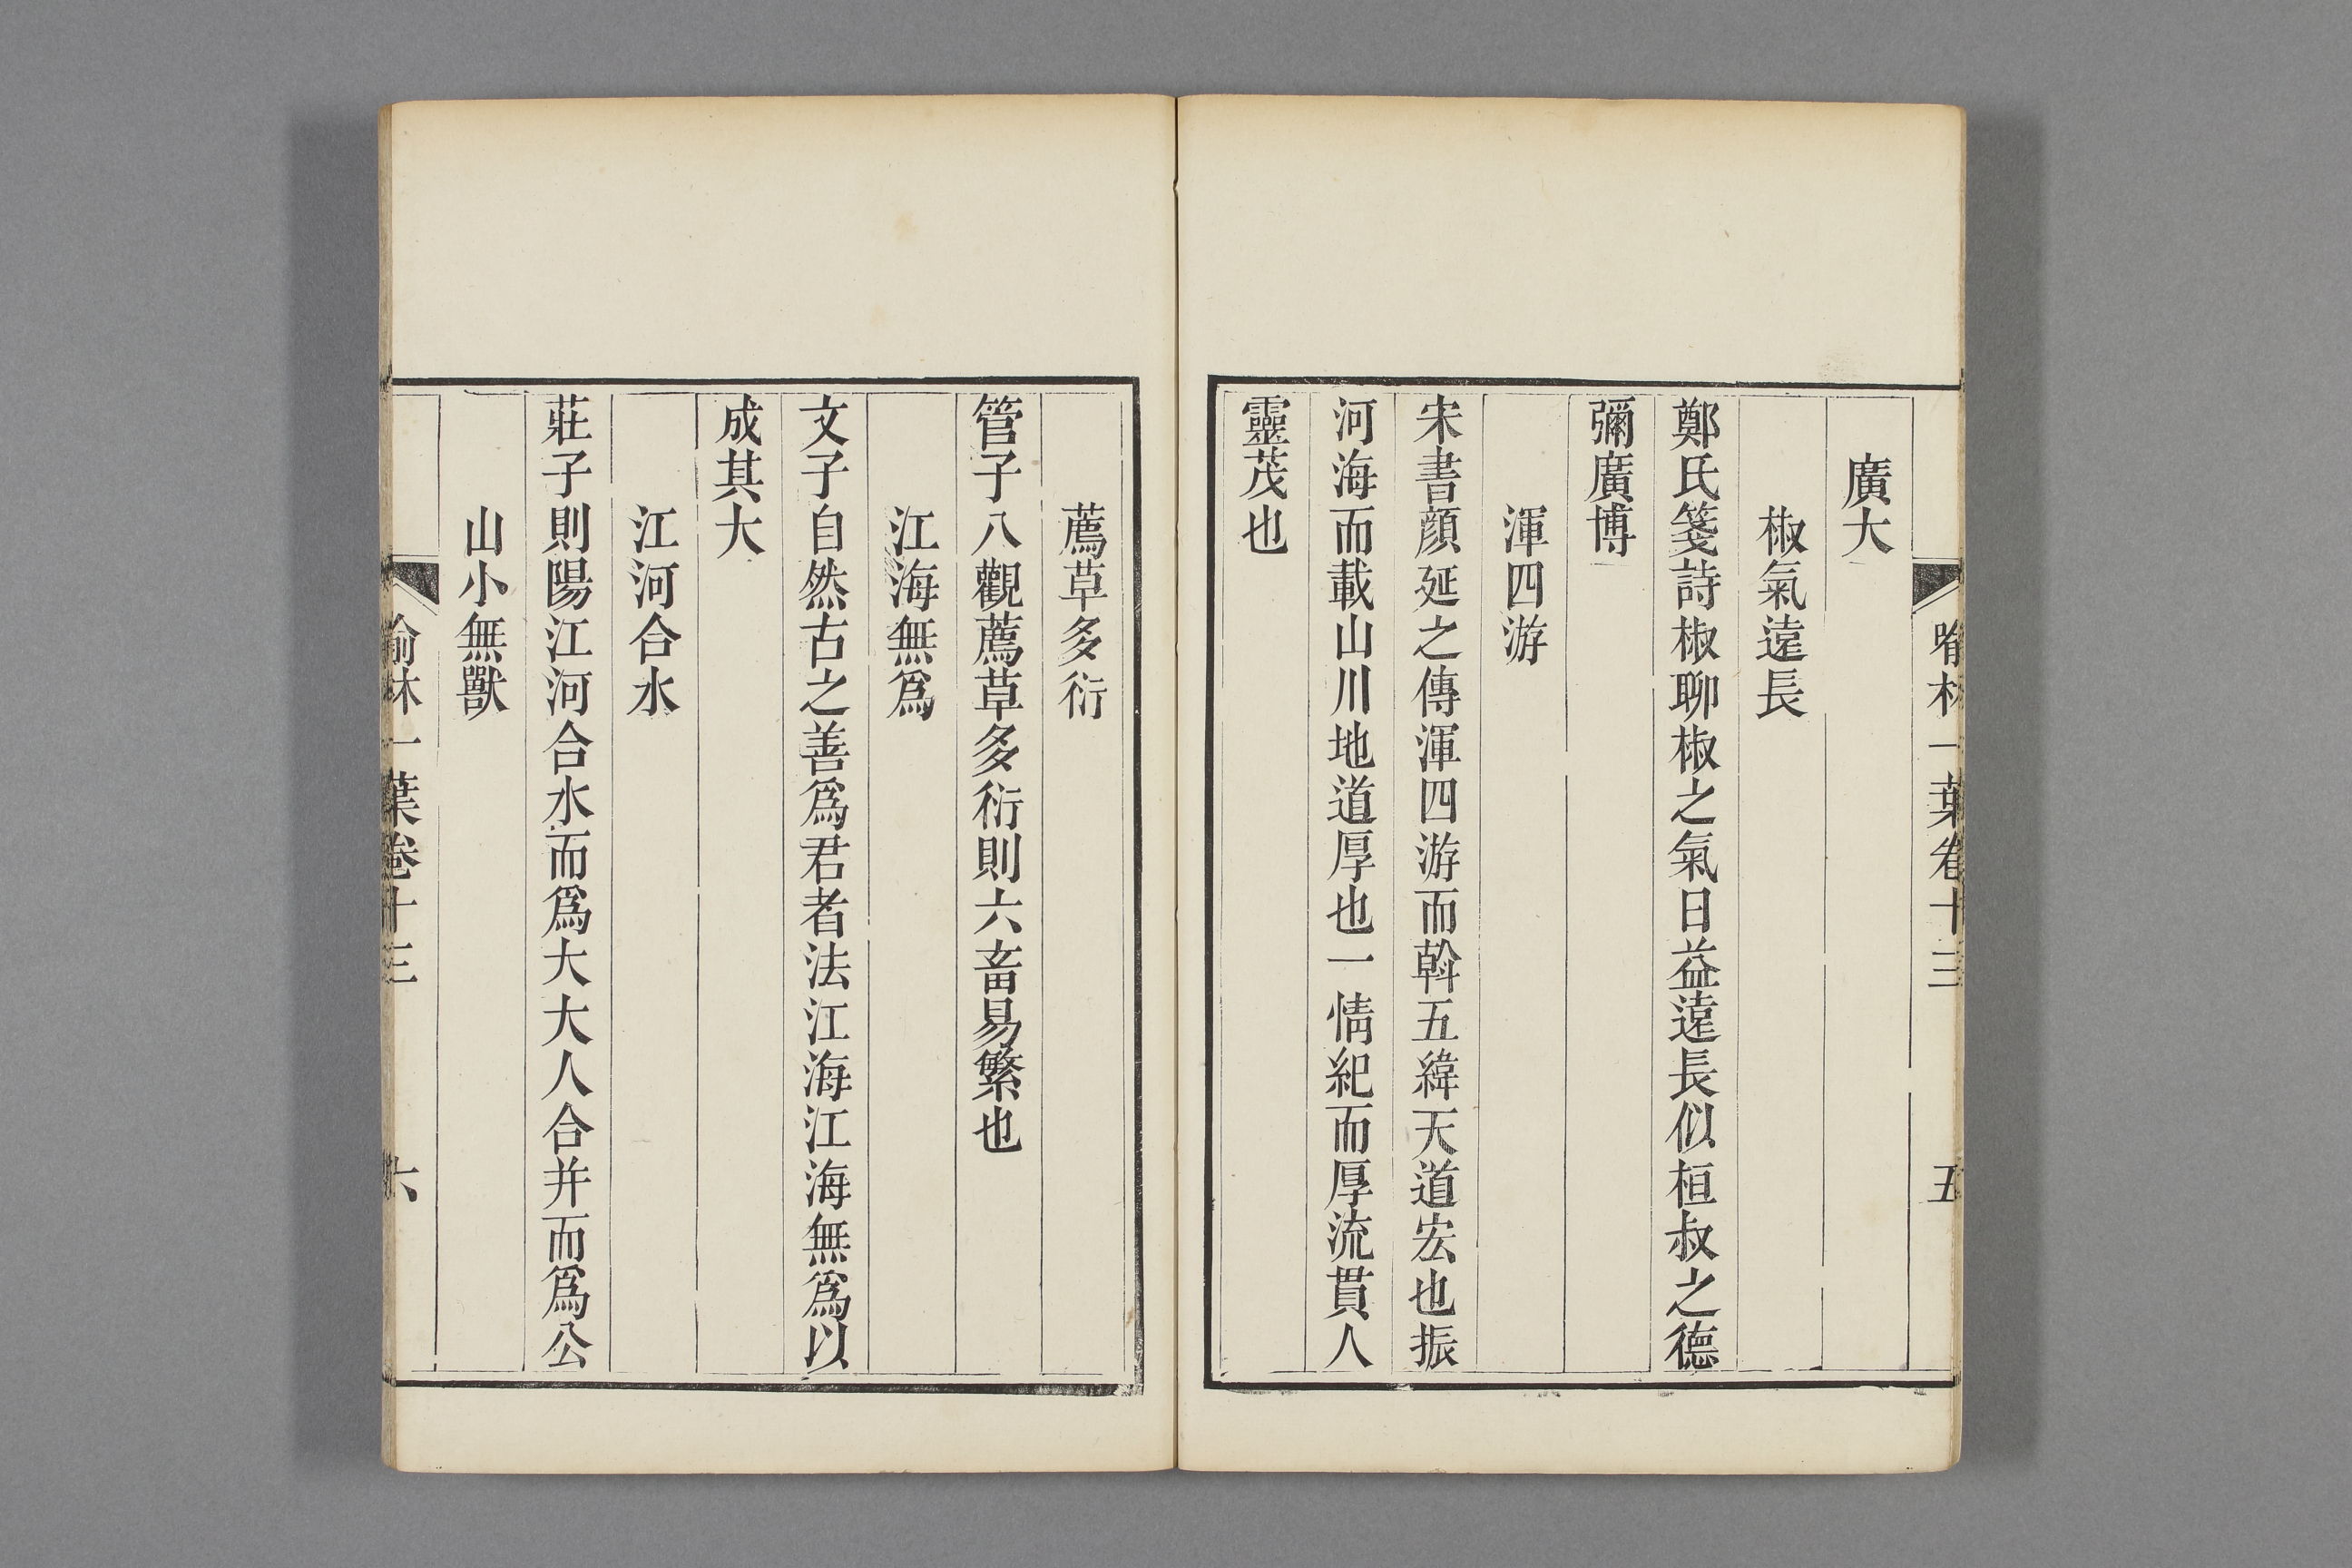 喻林一葉卷十三 五
廣大
椒氣遠長
鄭氏箋詩椒聊椒之氣日益遠長似桓叔之德
彌廣博
渾四游
宋書顏延之傳渾四游而斡五緯天道宏也振
河海而載山川地道厚也一情紀而厚流貫人
靈茂也
薦草多衍
管子八觀薦草多衍則六畜易繁也
江海無爲
文子自然古之善爲君者法江海江海無爲以
成其大
江河合水
莊子則陽江河合水而爲大大人合并而爲公
山小無獸
喻林一葉卷十三 六